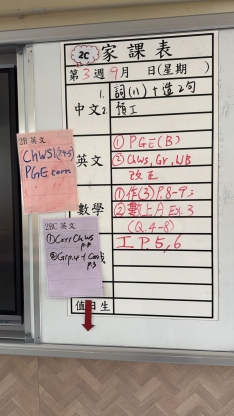 2C 家課表
第3週9月 日(星期 )
中文
1. 詞(11)+造2句
2. 預工
英文
① PGE(B)
② Chws, Gr, WB
改正
數學
① 作(3) P.8-9
② 數上A Ex.3
(Q.4-8)
工 P.5,6
值日生
2B 英文
ChWS1
PGE corr.
2BC 英文
① Corr Chws
p.4
② Grp.4 + Corr
p.3